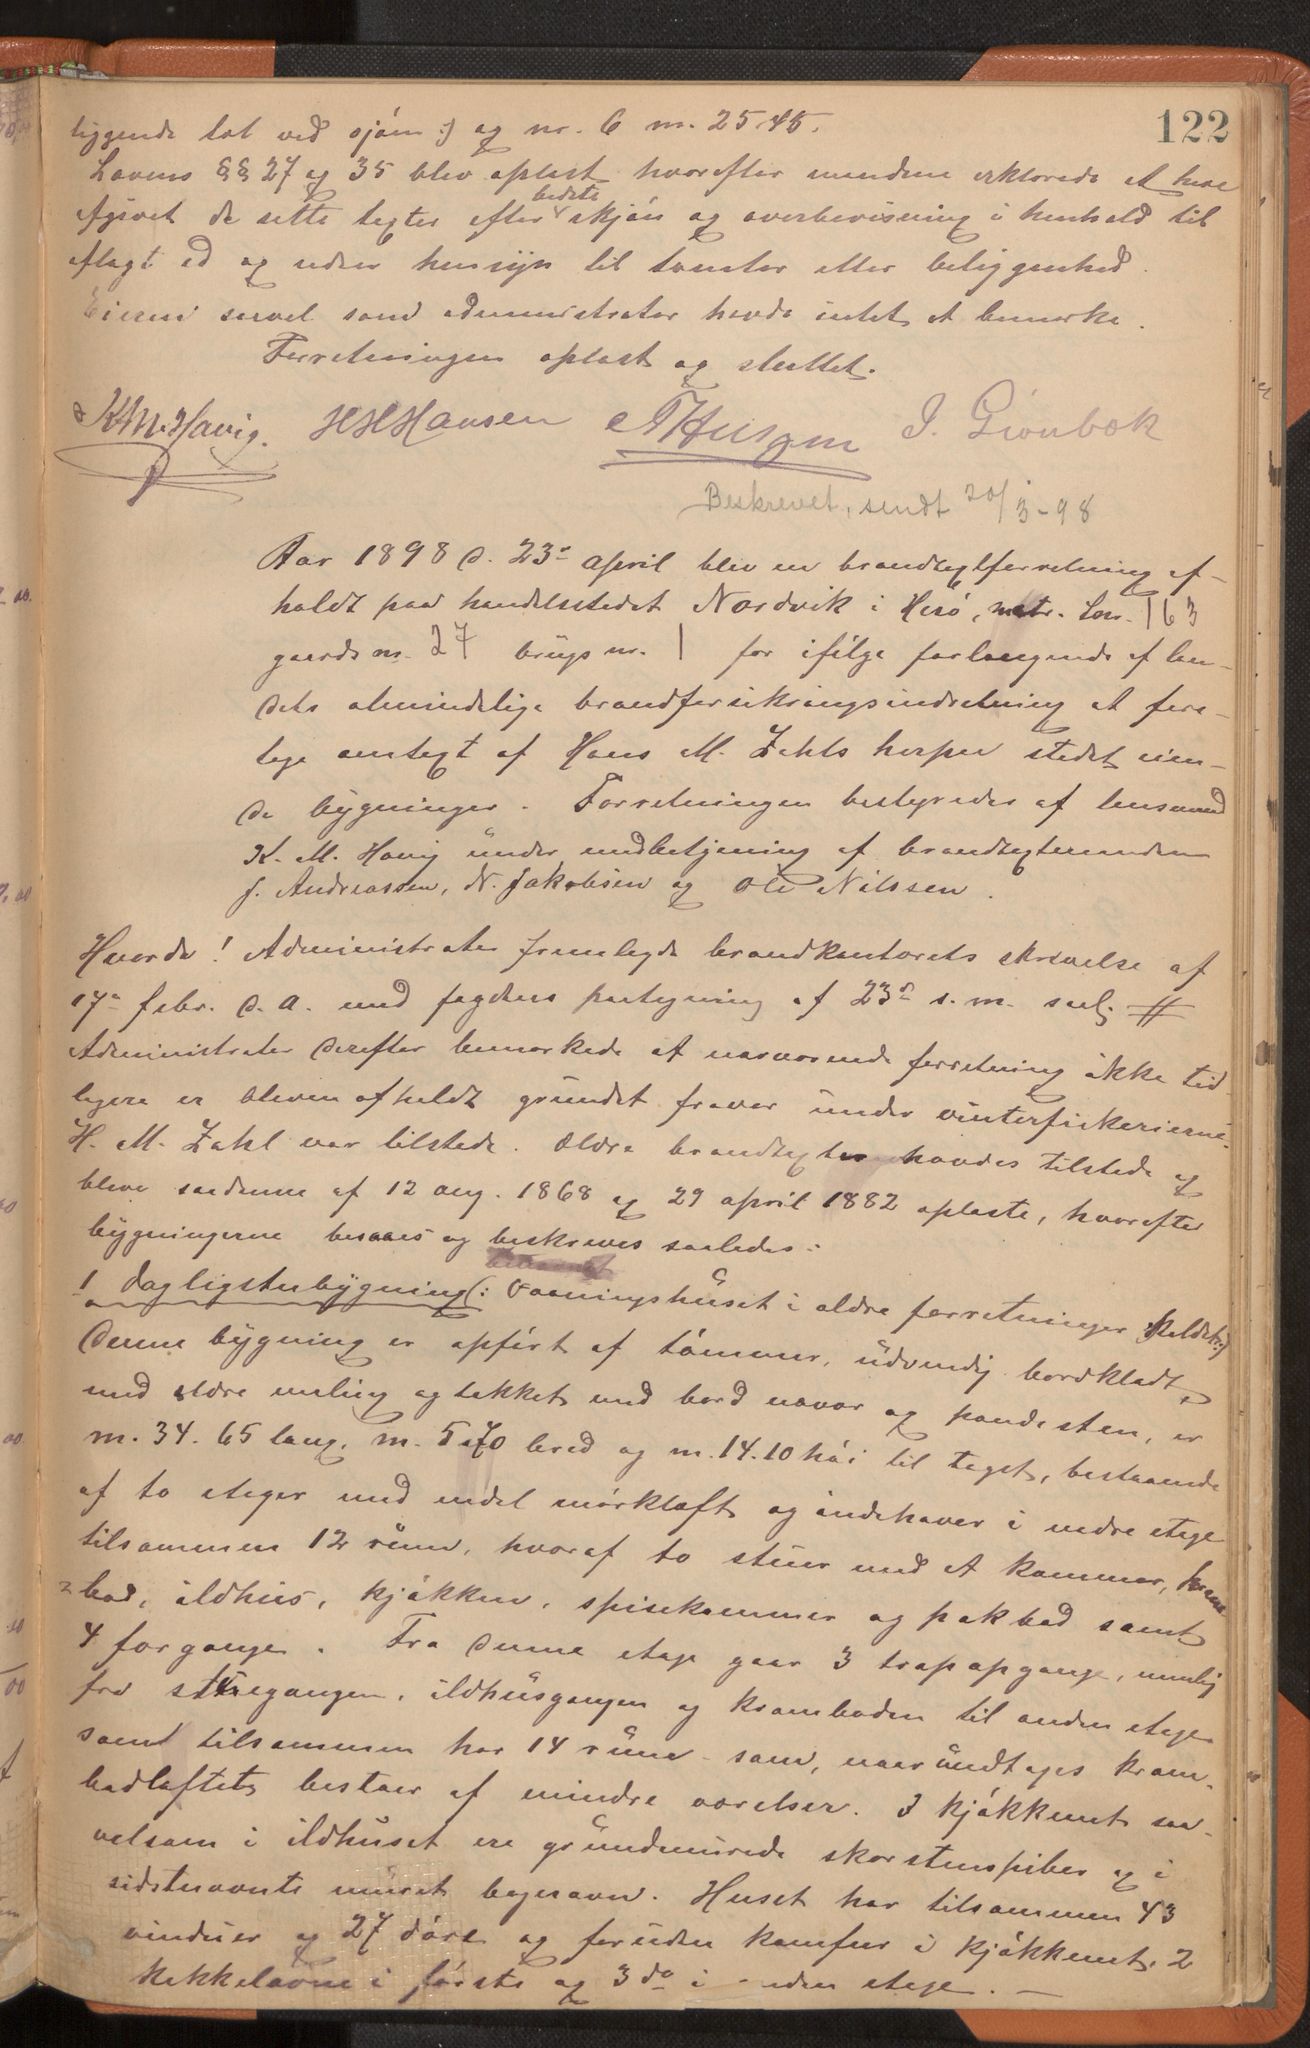 122
liggende tot ved sjøen :) og nr. 6 m. 25.45.
Lovens §§ 27 og 35 blev oplæst hvorefter mændene erklærede at have
afgivet de satte taxter efter bedste skjön og overbevisning i henhold til
aflagt ed og uden hensyn til tomter eller beliggenhed.
Eieren saavel som administrator havde intet at bemærke.
Forretningen oplæst og sluttet.
K. M. Havig. H H Hansen J. Grönbæk
Beskrevet, sendt 20/3-98
Aar 1898 d. 23de april blev en brandtaxtforretning af-
holdt paa handelsstedet Nordvik i Herö, matr. lnr. 163
gaards nr. 27 brugs nr. 1 for ifölge forlangende af lan-
dets almindelige brandforsikringsindretning at fore-
tage omtaxt af Hans M. Zahls herpaa stedet eien-
de bygninger. Forretningen bestyredes af lensmand
K. M. Havig under medbetjening af brandtaxtmændene
J. Andreassen, N. Jakobsen og Ole Nilssen.
Hvorda! Administrator fremlagde brandkontorets skrivelse af
17de febr. d. a. med fogdens paategning af 23de s. m. saal. #
Administrator derefter bemærkede at nærværende forretning ikke tid-
ligere er bleven afholdt grundet fravær under vinterfiskerierne.
H. M. Zahl var tilstede. Ældre brandtaxter havdes tilstede og
bleve saadanne af 12 aug. 1868 og 29 april 1882 oplæste, hvorefter
bygningerne besaaes og beskreves saaledes:
1 Dagligstubygning (: Vaaningshuset i ældre forretninger kaldet :)
Denne bygning er opfört af tömmer, udvendig bordklædt,
med ældre maling og tækket med bord næver og pandesten, er
m. 34.65 lang, m. 5.70 bred og m. 14.10 höi til taget, bestaaende
af to etager med endel mörkloft og indehaver i nedre etage
tilsammen 12 rum, hvoraf to stuer med et kammer, kram-
bod, ildhus, kjökken, spisekammer og pakbod samt
4 forgange. Fra denne etage gaar 3 trapopgange, nemlig
fra stuegangen, ildhusgangen og kramboden til anden etage
samt tilsammen har 14 rum som, naar undtages kram-
bodloftet, bestaar af mindre værelser. I kjökkenet saa-
velsom i ildhuset ere grundmurede skorstenspiber og i
sidstnævnte muret bagerovn. Huset har tilsammen 43
vinduer og 27 döre og foruden komfur i kjökkenet, 2
kakkelovne i förste og 3 do i anden etage. —